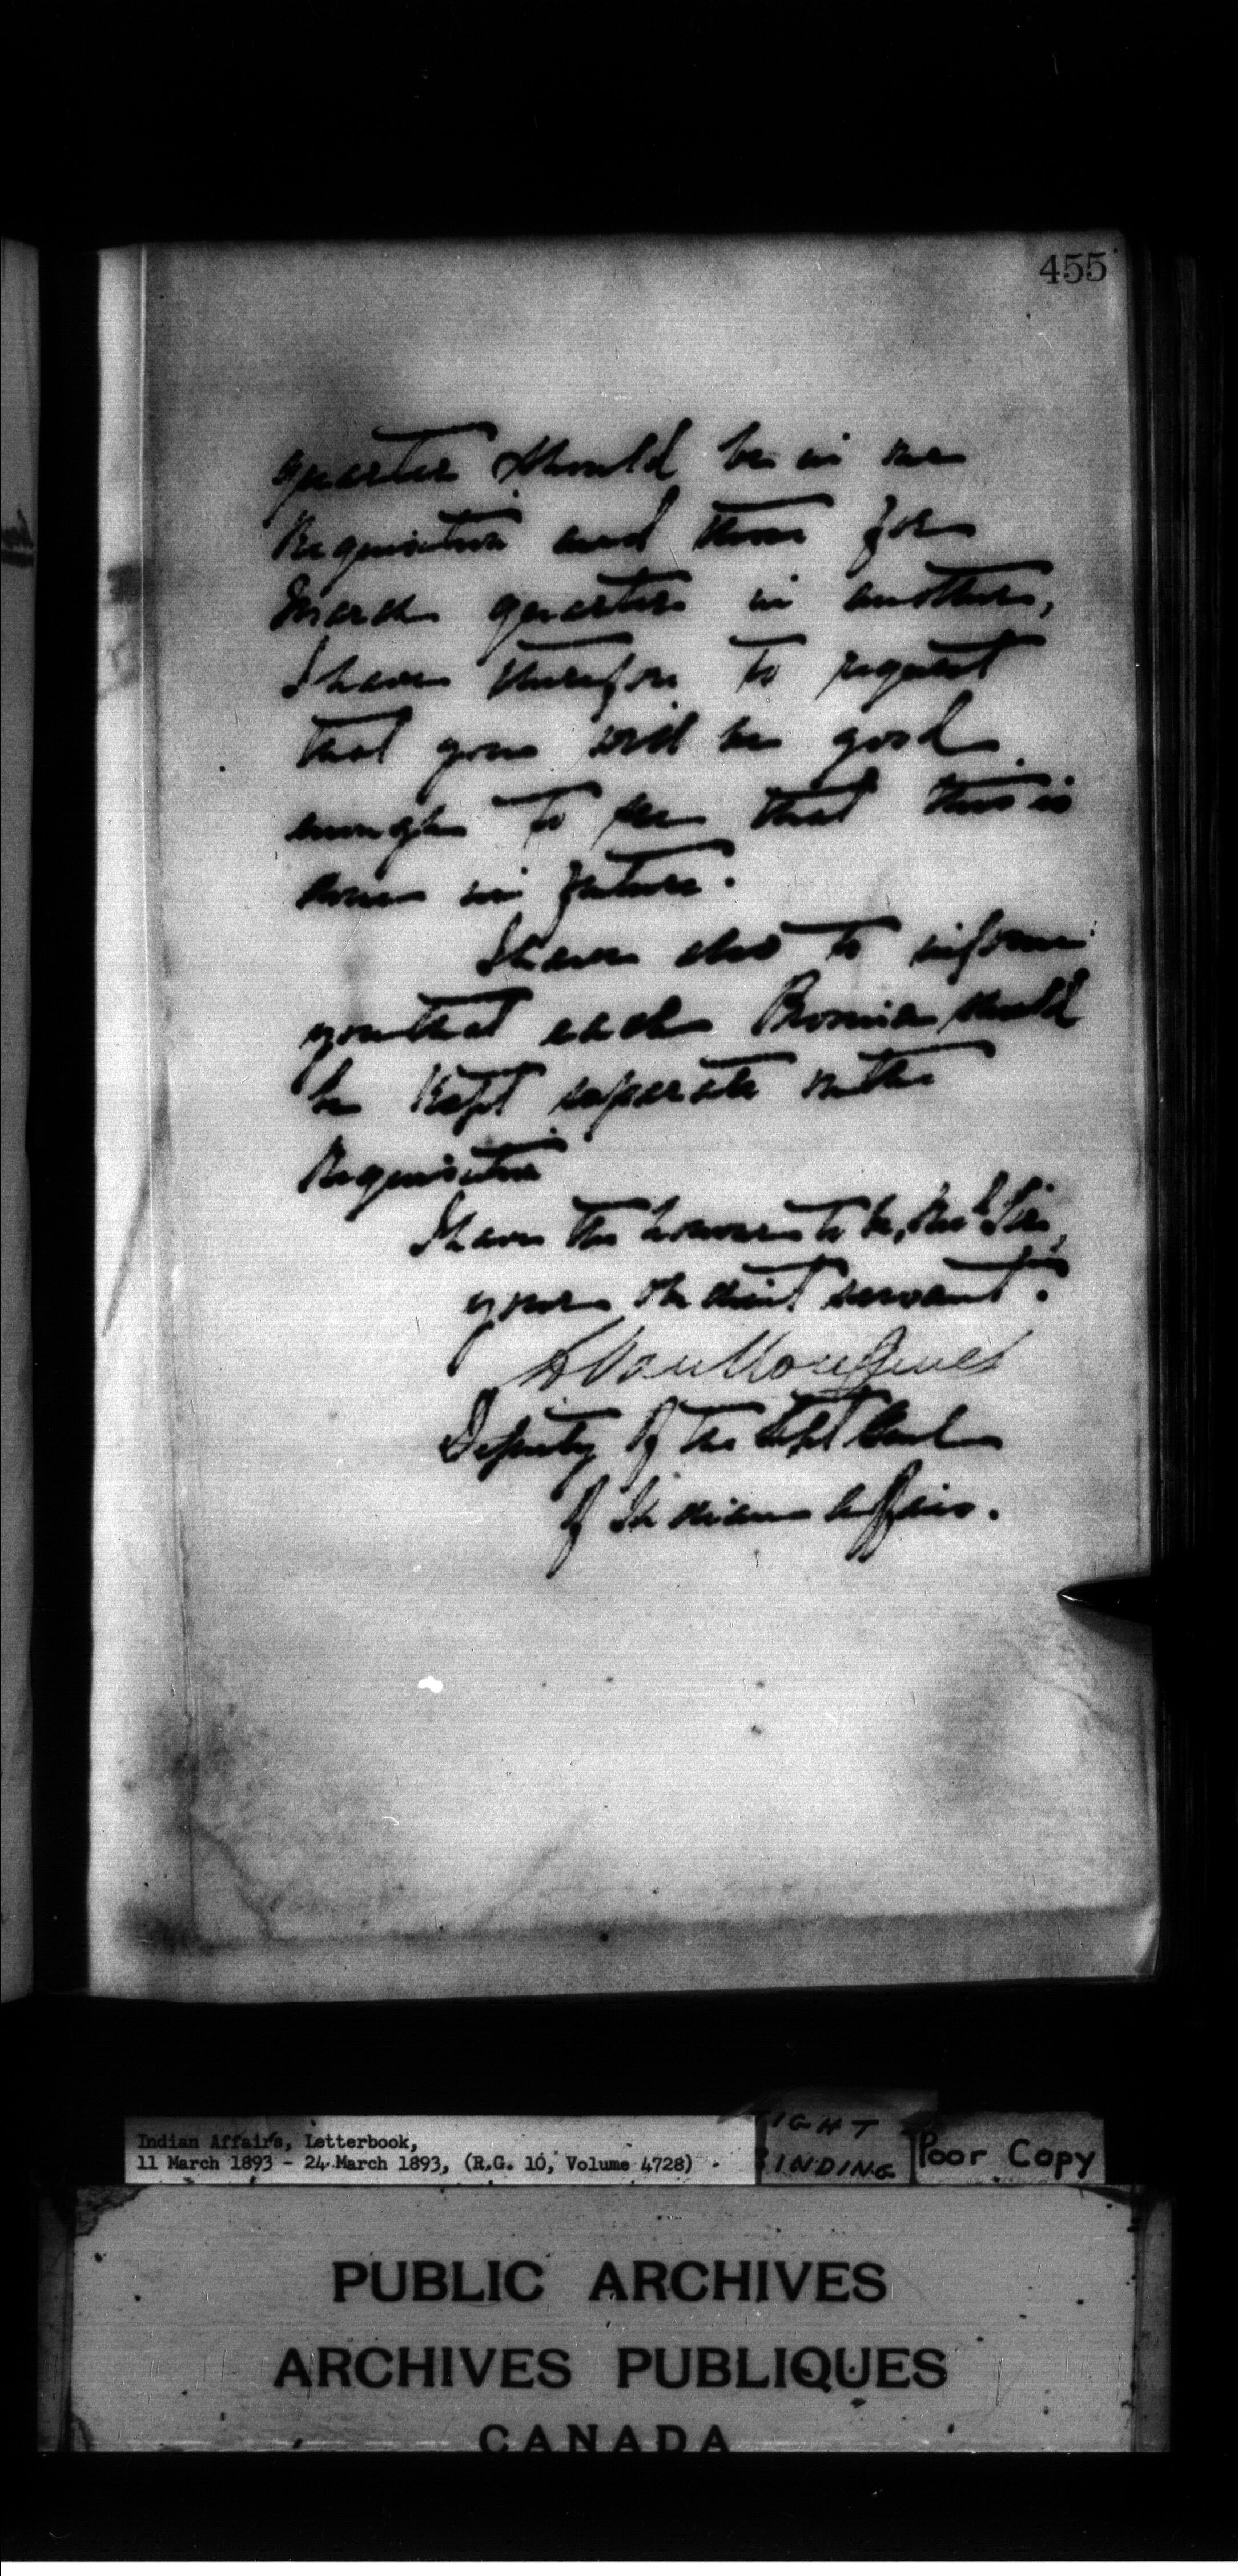 455
quarter should be in one
Requisition and those for
March quarter in another,
I have therefore to request
that you will be good
enough to see that this is
done in future.
I have also to inform
you that each Province should
be kept separate in the
Requisition
I have the honour to be, Sir,
your obedient servant.
L Vankoughnet
Deputy of the Supt Genl
of Indian Affairs.
Indian Affairs, Letterbook,
11 March 1893 - 24 March 1893, (R.G. 10, Volume 4728)
TIGHT
BINDING
Poor Copy
PUBLIC ARCHIVES
ARCHIVES PUBLIQUES
CANADA